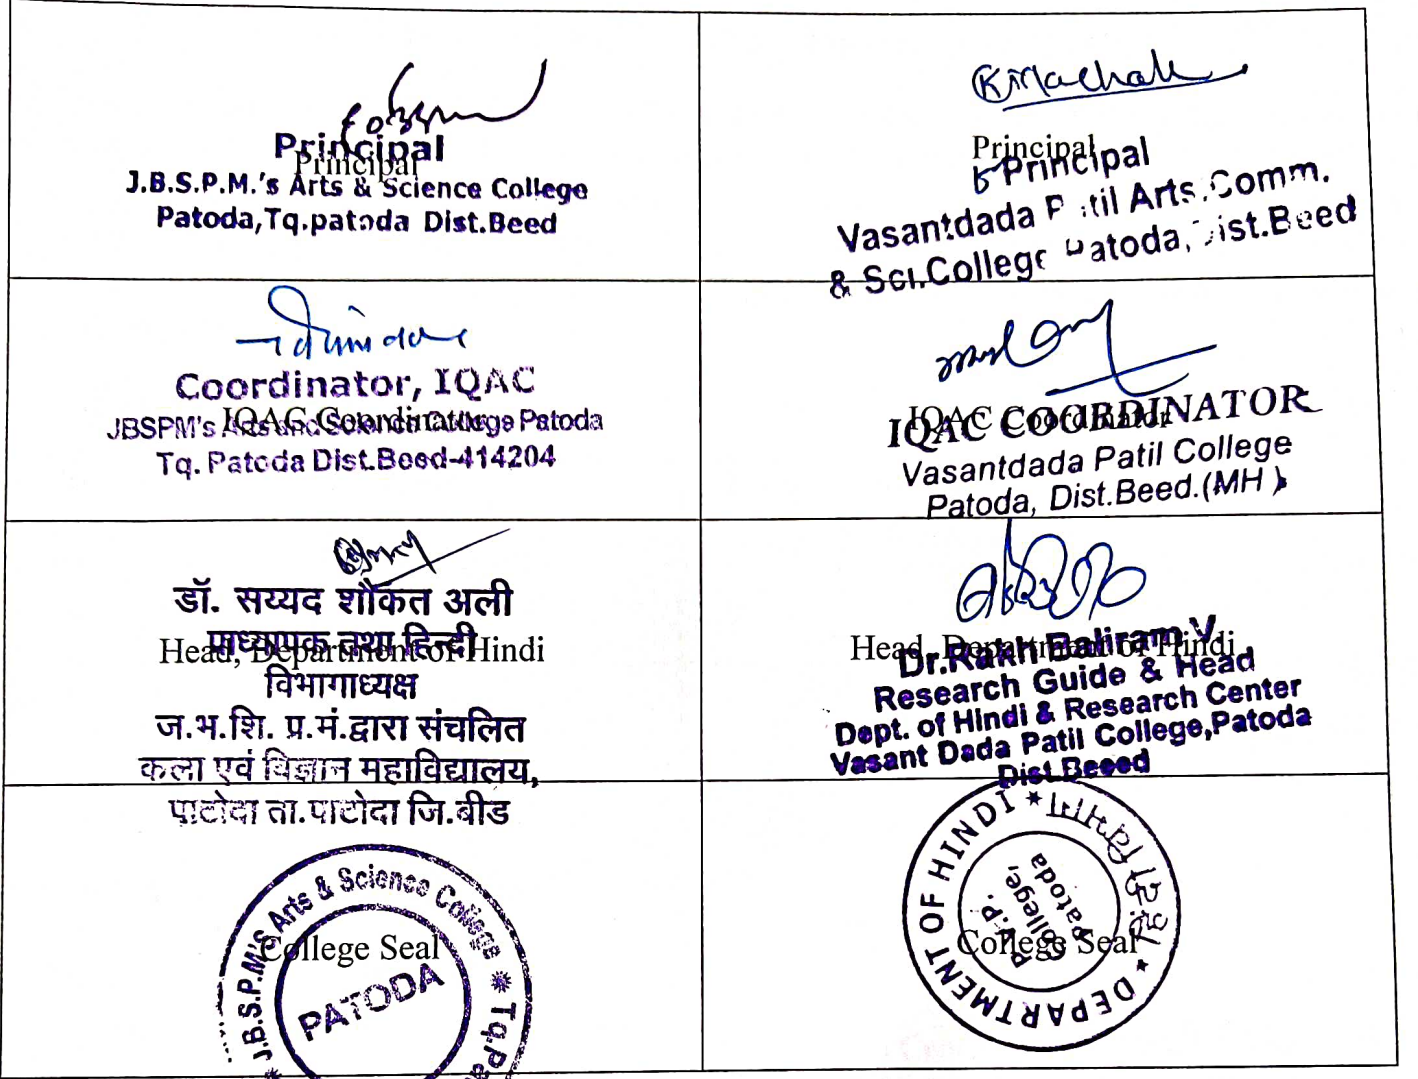 Principal
Principal
J.B.S.P.M.'s Arts & Science College
Patoda,Tq.patoda Dist.Beed
Principal
Principal
Vasantdada Patil Arts,Comm.
& Sci.College Patoda, Dist.Beed
Coordinator, IQAC
IQAC Coordinator
JBSPM's Arts and Science College Patoda
Tq. Patoda Dist.Beed-414204
IQAC Coordinator
IQAC COORDINATOR
Vasantdada Patil College
Patoda, Dist.Beed.(MH)
डॉ. सय्यद शौकत अली
प्राध्यापक तथा हिन्दी
Head, Department of Hindi
विभागाध्यक्ष
ज.भ.शि. प्र.मं.द्वारा संचलित
कला एवं विज्ञान महाविद्यालय,
पाटोदा ता.पाटोदा जि.बीड
Head, Department of Hindi
Dr.Rakh Baliram V.
Research Guide & Head
Dept. of Hindi & Research Center
Vasant Dada Patil College,Patoda
Dist.Beeed
J.B.S.P.M's Arts & Science College
College Seal
PATODA
DEPARTMENT OF HINDI
College,
Patoda
College Seal